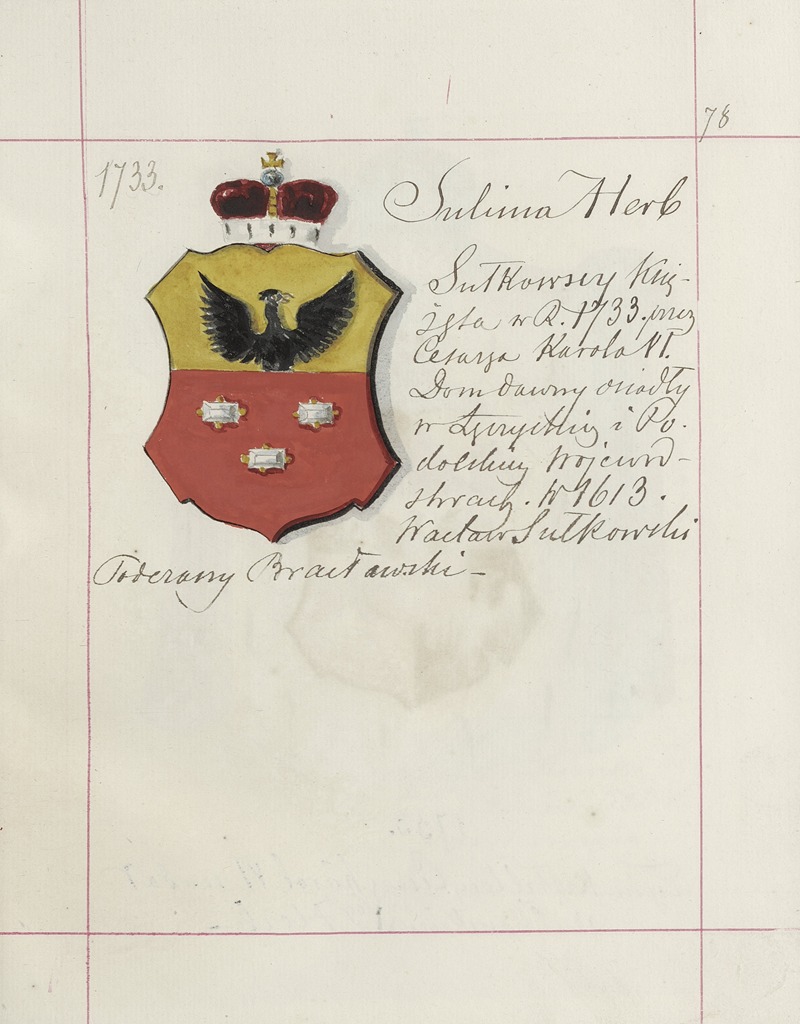 78
1733.
Sulima Herb
Sułkowscy Xią-
żęta w R. 1733. przez
Cesarza Karola VI.
Dom dawny osiadły
w Łęczyckiey i Po-
dolskiey Wojewó-
dztwach. W 1613.
Wacław Sułkowski
Podczaszy Bracławski -